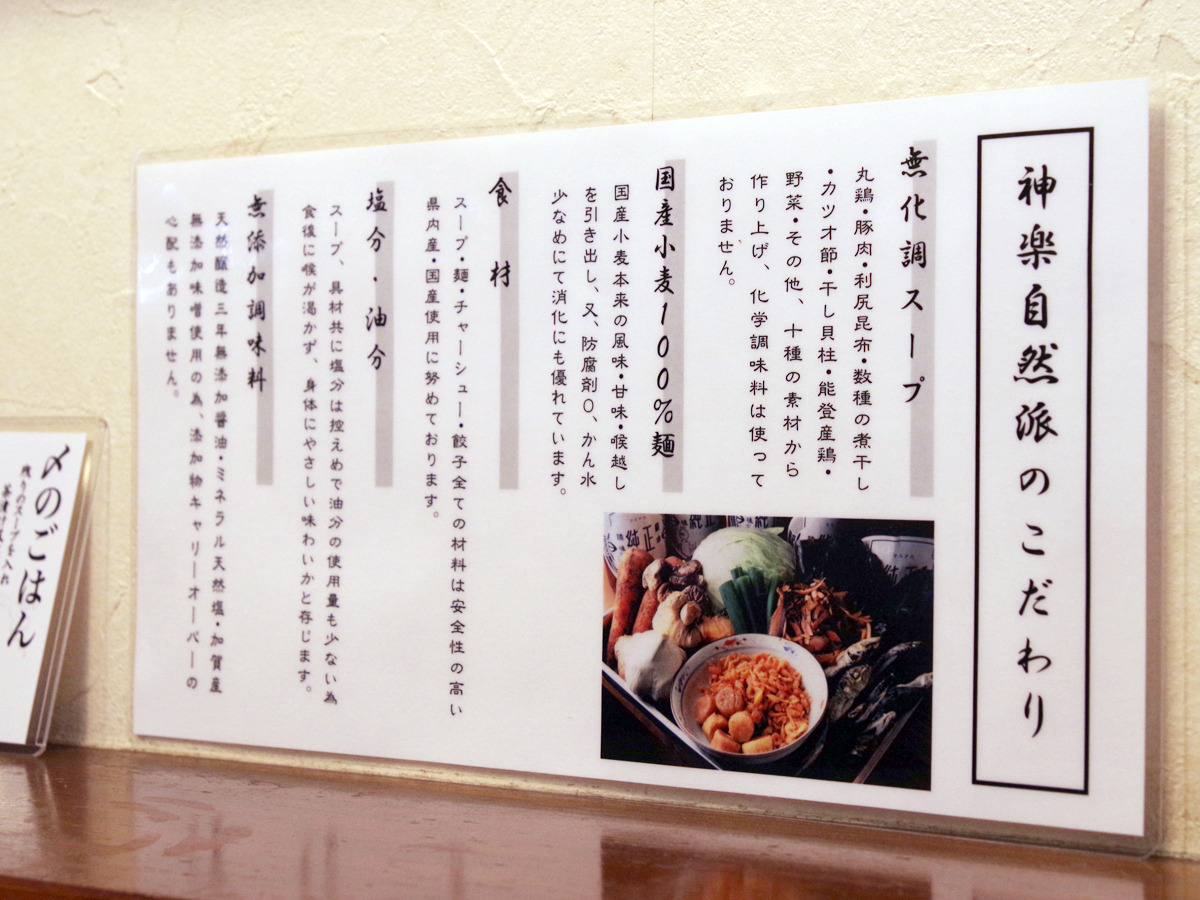 神楽自然派のこだわり
無化調スープ
丸鶏・豚肉・利尻昆布・数種の煮干し
・カツオ節・干し貝柱・能登産鶏・
野菜・その他、十種の素材から
作り上げ、化学調味料は使って
おりません。
国産小麦100%麺
国産小麦本来の風味・甘味・喉越し
を引き出し、又、防腐剤0、かん水
少なめにて消化にも優れています。
食材
スープ・麺・チャーシュー・餃子全ての材料は安全性の高い
県内産・国産使用に努めております。
塩分・油分
スープ、具材共に塩分は控えめで油分の使用量も少ない為
食後に喉が渇かず、身体にやさしい味わいかと存じます。
無添加調味料
天然醸造三年無添加醤油・ミネラル天然塩・加賀産
無添加味噌使用の為、添加物キャリーオーバーの
心配もありません。
純正
純正
〆のごはん
残りのスープを入れ